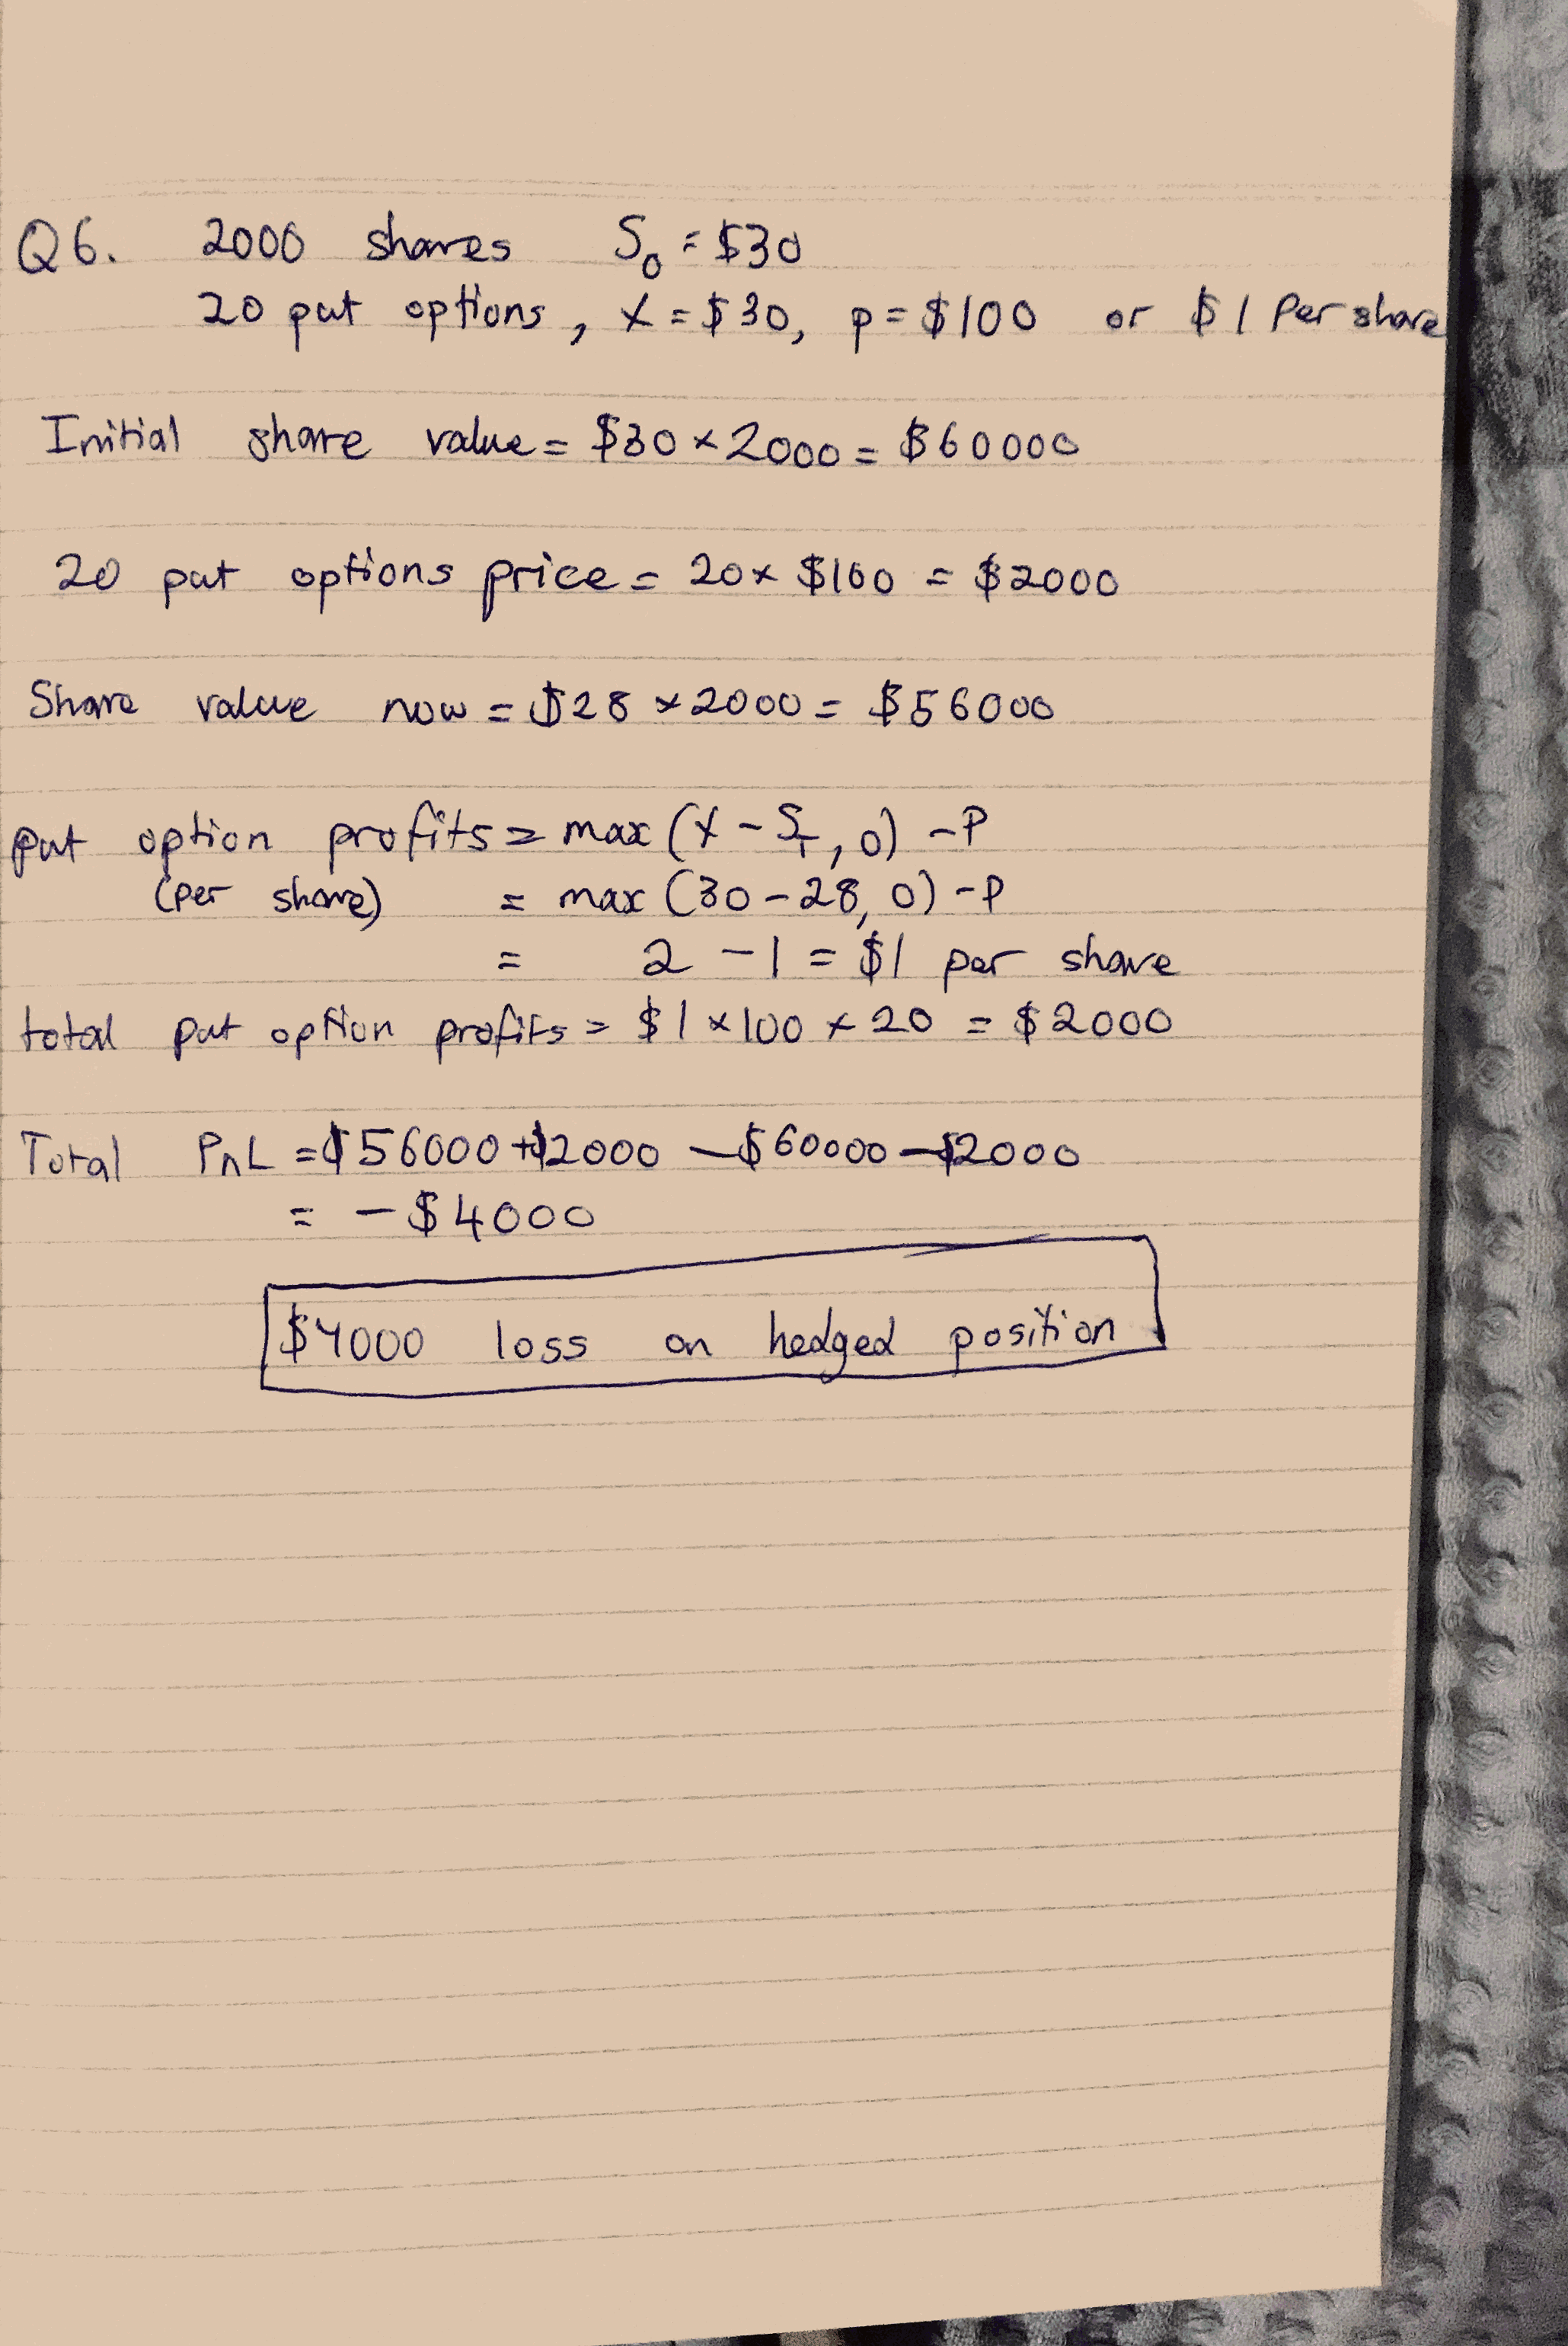 Q6. 2000 shares S₀ = $30
20 put options, X = $30, p = $100 or $1 Per share
Initial share value = $30 × 2000 = $60000
20 put options price = 20 × $100 = $2000
Share value now = $28 × 2000 = $56000
put option profits = max (X - S_T, 0) - P
(per share) = max (30 - 28, 0) - P
= 2 - 1 = $1 per share
total put option profits = $1 × 100 × 20 = $2000
Total PnL = $56000 + $2000 - $60000 - $2000
= - $4000
$4000 loss on hedged position